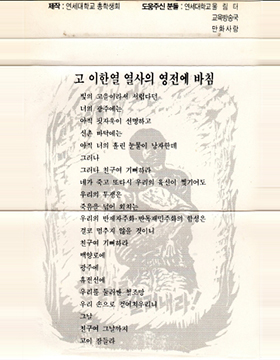 제작 : 연세대학교 총학생회
도움주신 분들 : 연세대학교 울림터
교육방송국
만화사랑
고 이한열 열사의 영전에 바침
빛의 고을이라서 서럽다던
너의 광주에는
아직 핏자욱이 선명하고
신촌 바닥에는
아직 너의 흘린 눈물이 낭자한데
그러나
그러나 친구여 기뻐하라
네가 죽고 또다시 우리의 육신이 찢기어도
우리의 투쟁은
죽음을 넘어 외치는
우리의 반제자주화·반독재민주화의 함성은
결코 멈추지 않을 것이니
친구여 기뻐하라
백양로에
광주에
휴전선에
우리를 둘러싼 철조망
우리 손으로 걷어치우리니
그날
친구여 그날까지
고이 잠들라